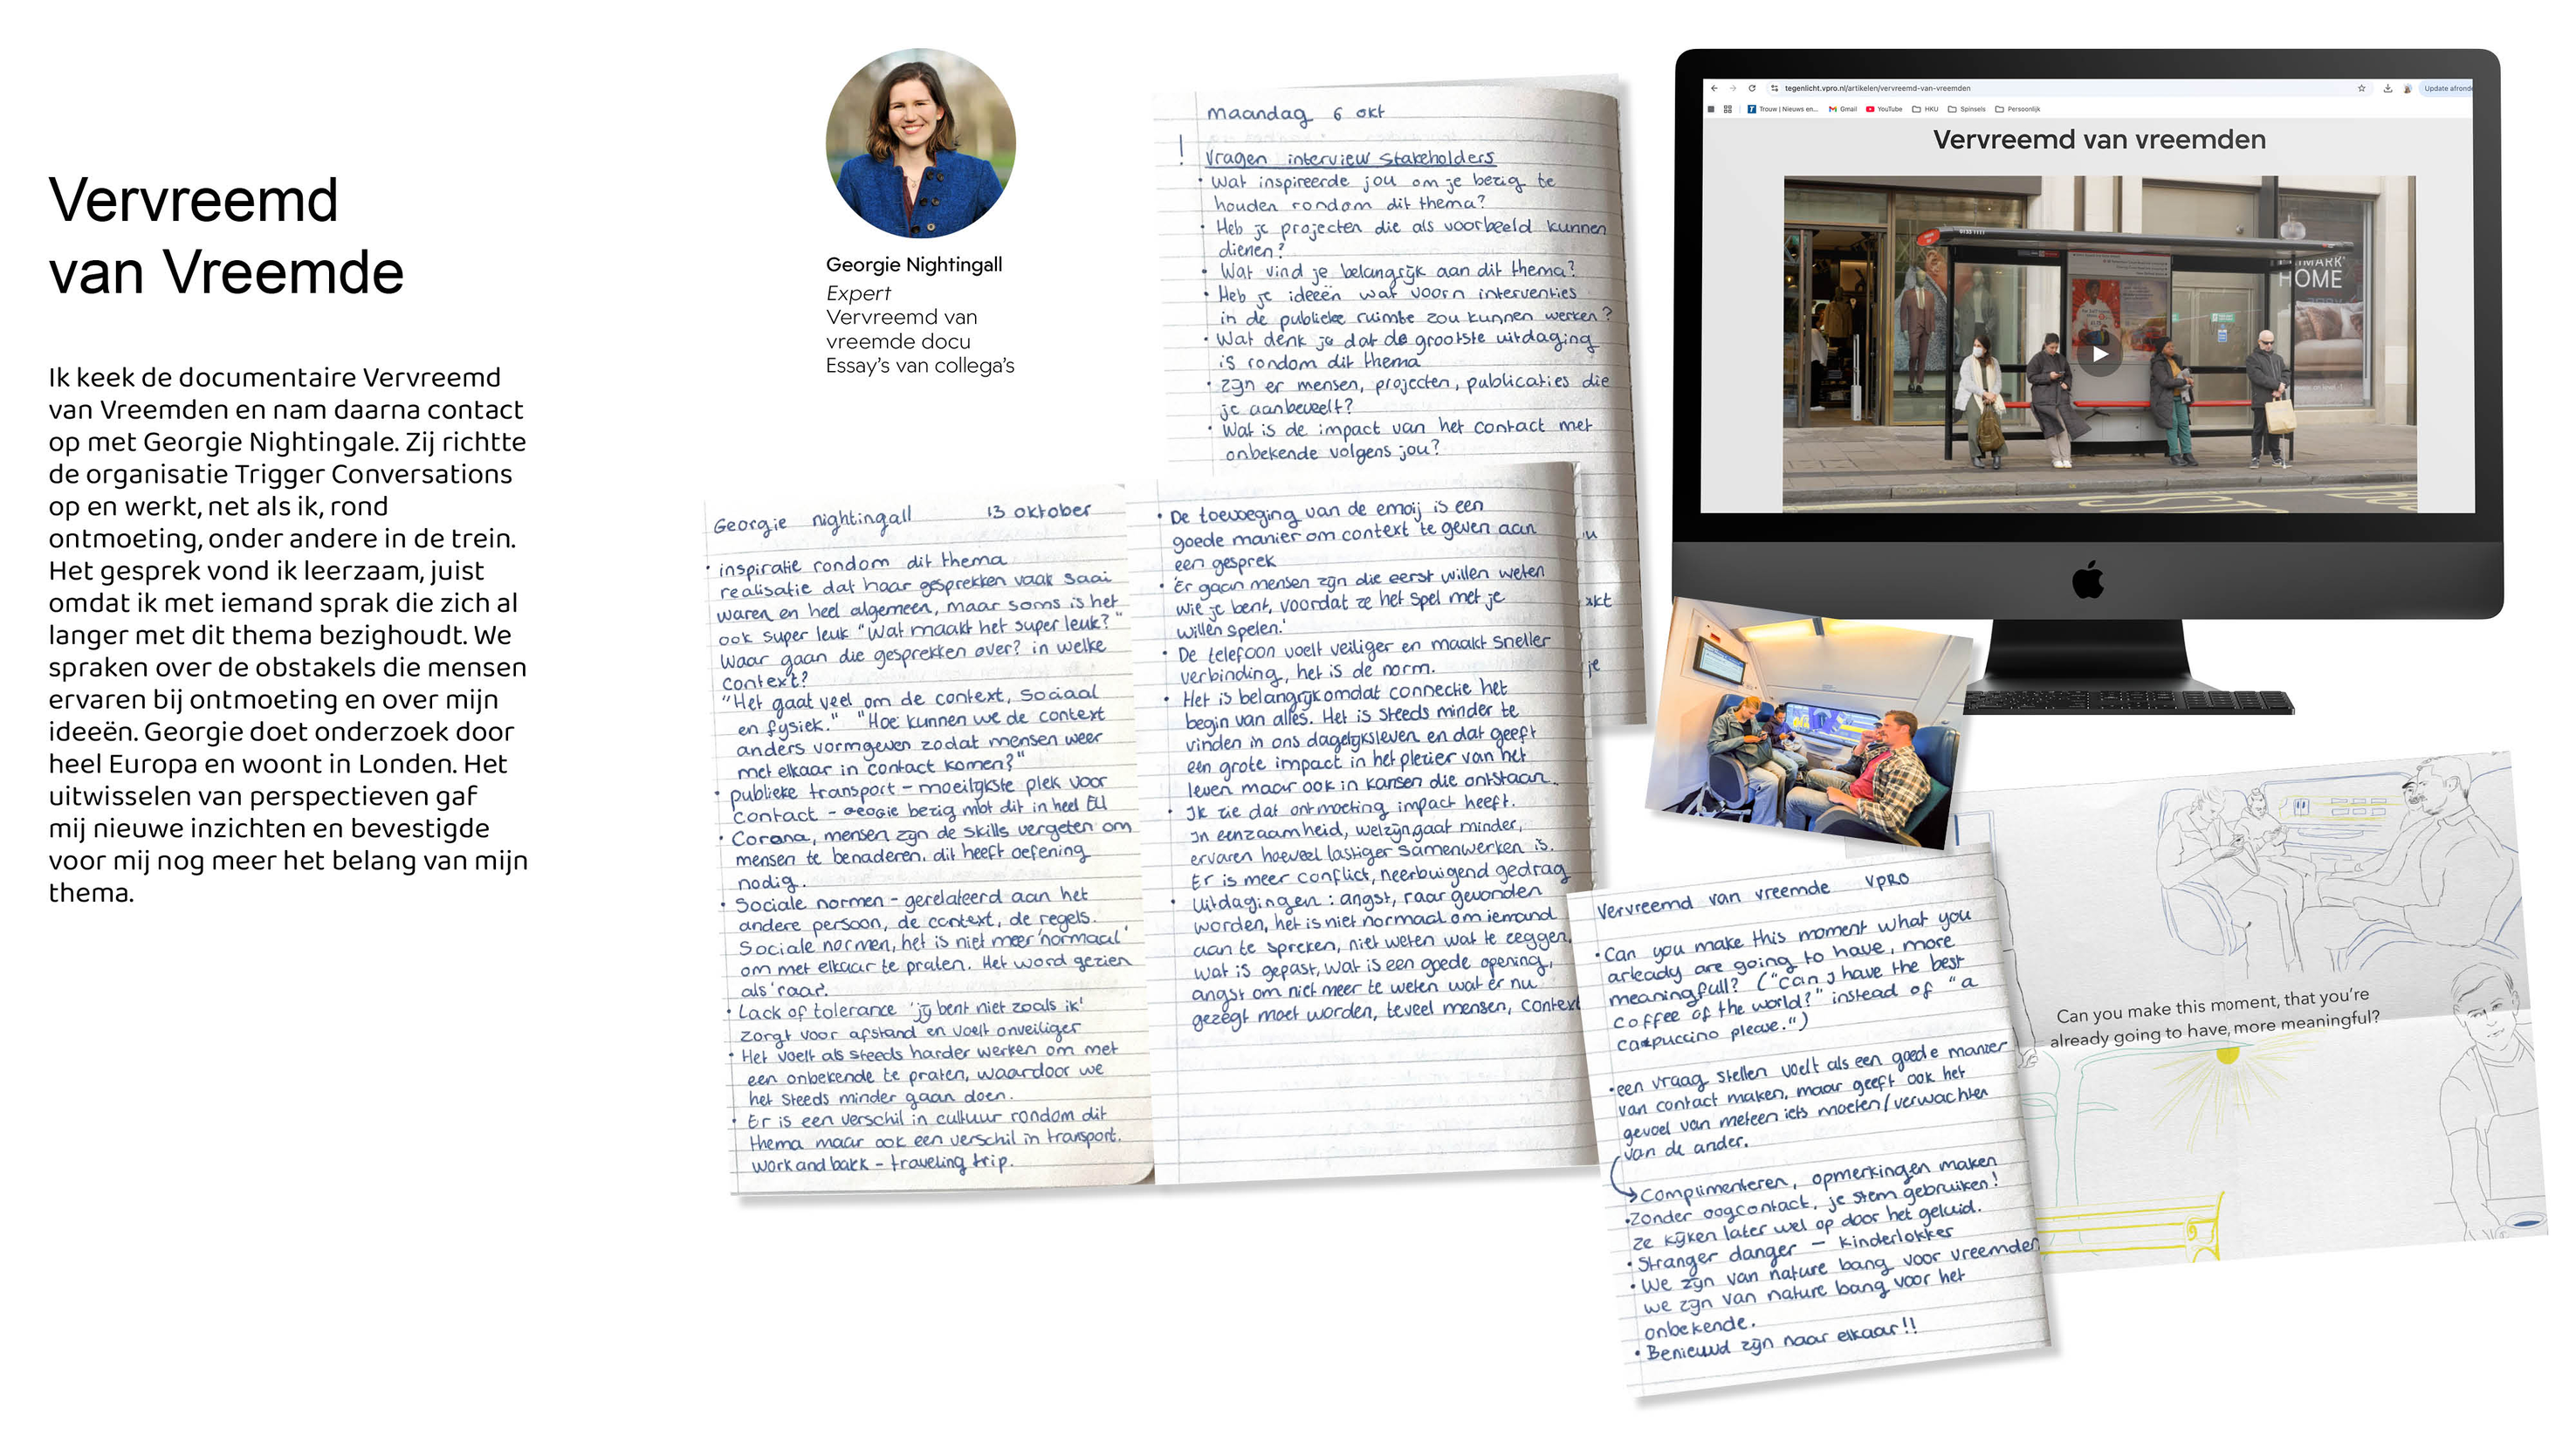 Vervreemd
van Vreemde
Ik keek de documentaire Vervreemd
van Vreemden en nam daarna contact
op met Georgie Nightingale. Zij richtte
de organisatie Trigger Conversations
op en werkt, net als ik, rond
ontmoeting, onder andere in de trein.
Het gesprek vond ik leerzaam, juist
omdat ik met iemand sprak die zich al
langer met dit thema bezighoudt. We
spraken over de obstakels die mensen
ervaren bij ontmoeting en over mijn
ideeën. Georgie doet onderzoek door
heel Europa en woont in Londen. Het
uitwisselen van perspectieven gaf
mij nieuwe inzichten en bevestigde
voor mij nog meer het belang van mijn
thema.
Georgie Nightingall
Expert
Vervreemd van
vreemde docu
Essay's van collega's
maandag 6 okt
! Vragen interview stakeholders
• Wat inspireerde jou om je bezig te
houden rondom dit thema?
• Heb je projecten die als voorbeeld kunnen
dienen?
• Wat vind je belangrijk aan dit thema?
• Heb je ideeën wat voorn interventies
in de publieke ruimte zou kunnen werken?
• Wat denk je dat de grootste uitdaging
is rondom dit thema
• zijn er mensen, projecten, publicaties die
je aanbeveelt?
• Wat is de impact van het contact met
onbekende volgens jou?
Georgie nightingall 13 oktober
• inspiratie rondom dit thema
realisatie dat haar gesprekken vaak saai
waren en heel algemeen, maar soms is het
ook super leuk "Wat maakt het super leuk?"
Waar gaan die gesprekken over? in welke
context?
"Het gaat veel om de context, sociaal
en fysiek." "Hoe kunnen we de context
anders vormgeven zodat mensen weer
met elkaar in contact komen?"
• publieke transport - moeilijkste plek voor
contact - Georgie bezig met dit in heel EU
• Corona, mensen zijn de skills vergeten om
mensen te benaderen. dit heeft oefening
nodig.
• Sociale normen - gerelateerd aan het
andere persoon, de context, de regels.
Sociale normen, het is niet meer 'normaal'
om met elkaar te praten. Het word gezien
als 'raar'.
• Lack of tolerance 'jij bent niet zoals ik'
zorgt voor afstand en voelt onveiliger
• Het voelt als steeds harder werken om met
een onbekende te praten, waardoor we
het steeds minder gaan doen.
• Er is een verschil in cultuur rondom dit
thema maar ook een verschil in transport.
work and bakk - traveling trip.
• De toevoeging van de emoij is een
goede manier om context te geven aan
een gesprek
• 'Er gaan mensen zijn die eerst willen weten
wie je bent, voordat ze het spel met je
willen spelen.'
• De telefoon voelt veiliger en maakt sneller
verbinding, het is de norm.
• Het is belangrijk omdat connectie het
begin van alles. Het is steeds minder te
vinden in ons dagelijksleven en dat geeft
een grote impact in het plezier van het
leven maar ook in kansen die ontstaan.
• Ik zie dat ontmoeting impact heeft.
In eenzaamheid, welzijn gaat minder,
ervaren hoeveel lastiger samenwerken is.
Er is meer conflict, neerbuigend gedrag
• Uitdagingen: angst, raar gevonden
worden, het is niet normaal om iemand
aan te spreken, niet weten wat te zeggen,
wat is gepast, wat is een goede opening,
angst om niet meer te weten wat er nu
gezegt moet worden, teveel mensen, context
tegenlicht.vpro.nl/artikelen/vervreemd-van-vreemden
Update afronde
Trouw | Nieuws en... Gmail YouTube HKU Spinsels Persoonlijk
Vervreemd van vreemden
HOME
Vervreemd van vreemde VPRO
• Can you make this moment what you
arleady are going to have, more
meaningfull? ("can I have the best
coffee of the world?" instead of "a
cappuccino please.")
• een vraag stellen voelt als een goede manier
van contact maken, maar geeft ook het
gevoel van meteen iets moeten/verwachten
van de ander.
→ Complimenteren, opmerkingen maken
• Zonder oogcontact, je stem gebruiken!
Ze kijken later wel op door het geluid.
• Stranger danger - kinderlokker
• We zijn van nature bang voor vreemden
we zijn van nature bang voor het
onbekende.
• Benieuwd zijn naar elkaar!!
Can you make this moment, that you're
already going to have, more meaningful?